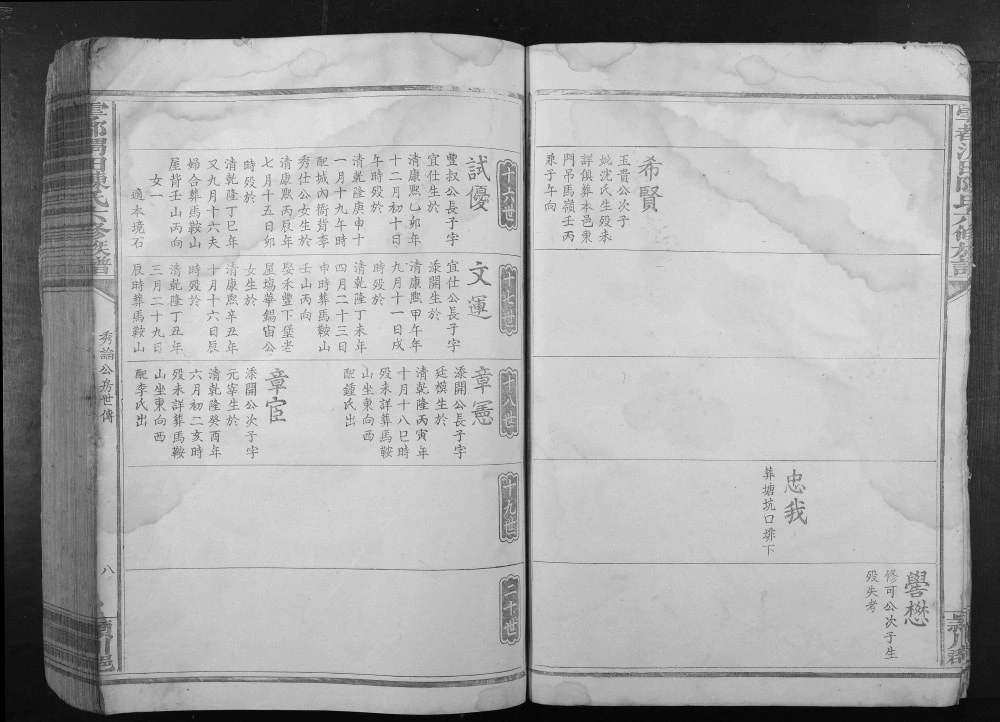 希賢
玉貴公次子
妣沈氏生殁未
詳俱葬本邑東
門吊馬嶺壬丙
兼子午向
忠我
葬塘坑口排下
譽懋
修可公次子生
殁失考
十六世
試優
豐叔公長子字
宜仕生於
清康熙乙卯年
十二月初十日
午時殁於
清乾隆庚申十
一月十九午時
配城內衙背李
秀仕公女生於
清康熙丙辰年
七月十五日卯
時殁於
清乾隆丁巳年
又九月十六夫
婦合葬馬鞍山
屋背壬山丙向
女一
適本境石
十七世
文運
宜仕公長子字
添開生於
清康熙甲午年
九月十一日戌
時殁於
清乾隆丁未年
四月二十三日
申時葬馬鞍山
壬山丙向
娶禾豐下堡老
屋塢華錫宙公
女生於
清康熙辛丑年
十月十六日辰
時殁於
清乾隆丁丑年
三月二十九日
辰時葬馬鞍山
十八世
章憲
添開公長子字
廷模生於
清乾隆丙寅年
十月十八巳時
殁未詳葬馬鞍
山坐東向西
配鍾氏出
章宦
添開公次子字
元宰生於
清乾隆癸酉年
六月初二亥時
殁未詳葬馬鞍
山坐東向西
配李氏出
十九世
二十世
秀論公房世傳
八